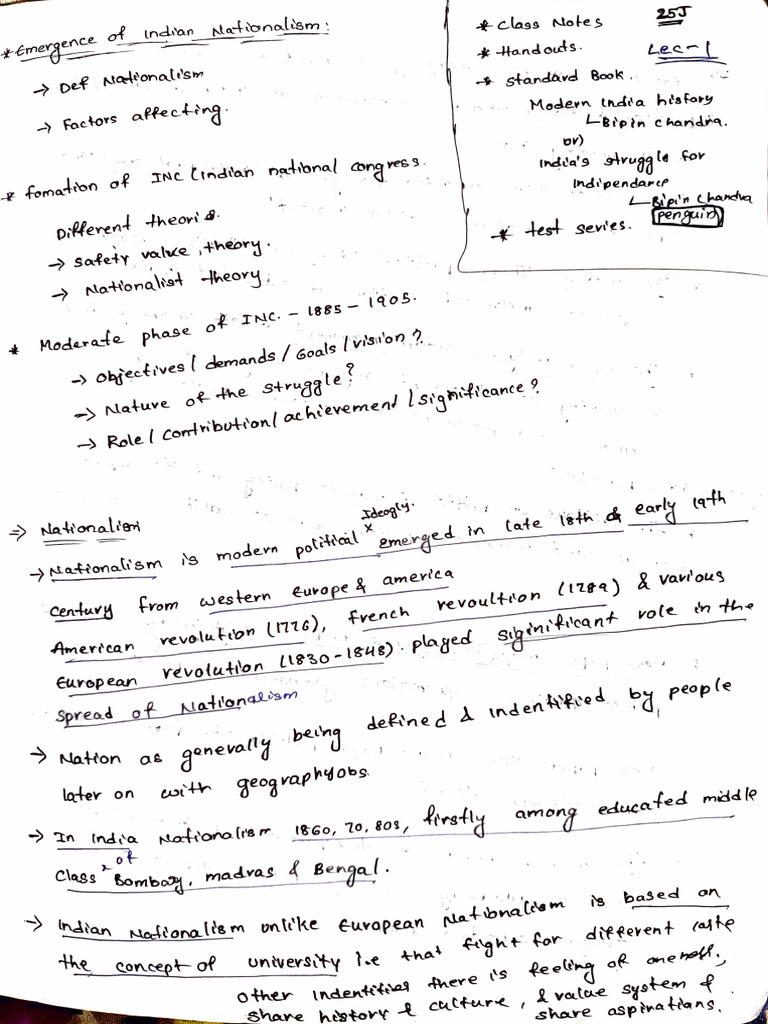 * Emergence of Indian Nationalism:
→ Def Nationalism
→ Factors affecting.
* fomation of INC (indian national congress.
Different theoris.
→ safety value, theory.
→ Nationalist theory.
* Moderate phase of INC. - 1885 - 1905.
→ objectives / demands / Goals / vision?
→ Nature of the struggle?
→ Role / contribution / achievement / significance?
25J
Lec-1
* Class Notes
* Handouts.
* Standard Book.
Modern india history
Bipin chandra.
or)
india's struggle for
indipendance
Bipin Chandra
penguin
* test series.
⇒ Nationalism
Ideogly.
→ Nationalism is modern political x emerged in late 18th & early 19th
century from western Europe & america
American revolution (1776), french revoultion (1789) & various
European revolution (1830-1848). played siginificant role in the
spread of Nationalism
→ Nation as generally being defined & indentified by people
later on with geography
→ In india Nationalism 1860, 70, 80s, firstly among educated middle
class x of Bombay, madras & Bengal.
→ indian Nationalism unlike European Nationalism is based on
the concept of university i.e that fight for different caste
other indentities there is feeling of oneness,
share history & culture, & value system &
share aspirations.